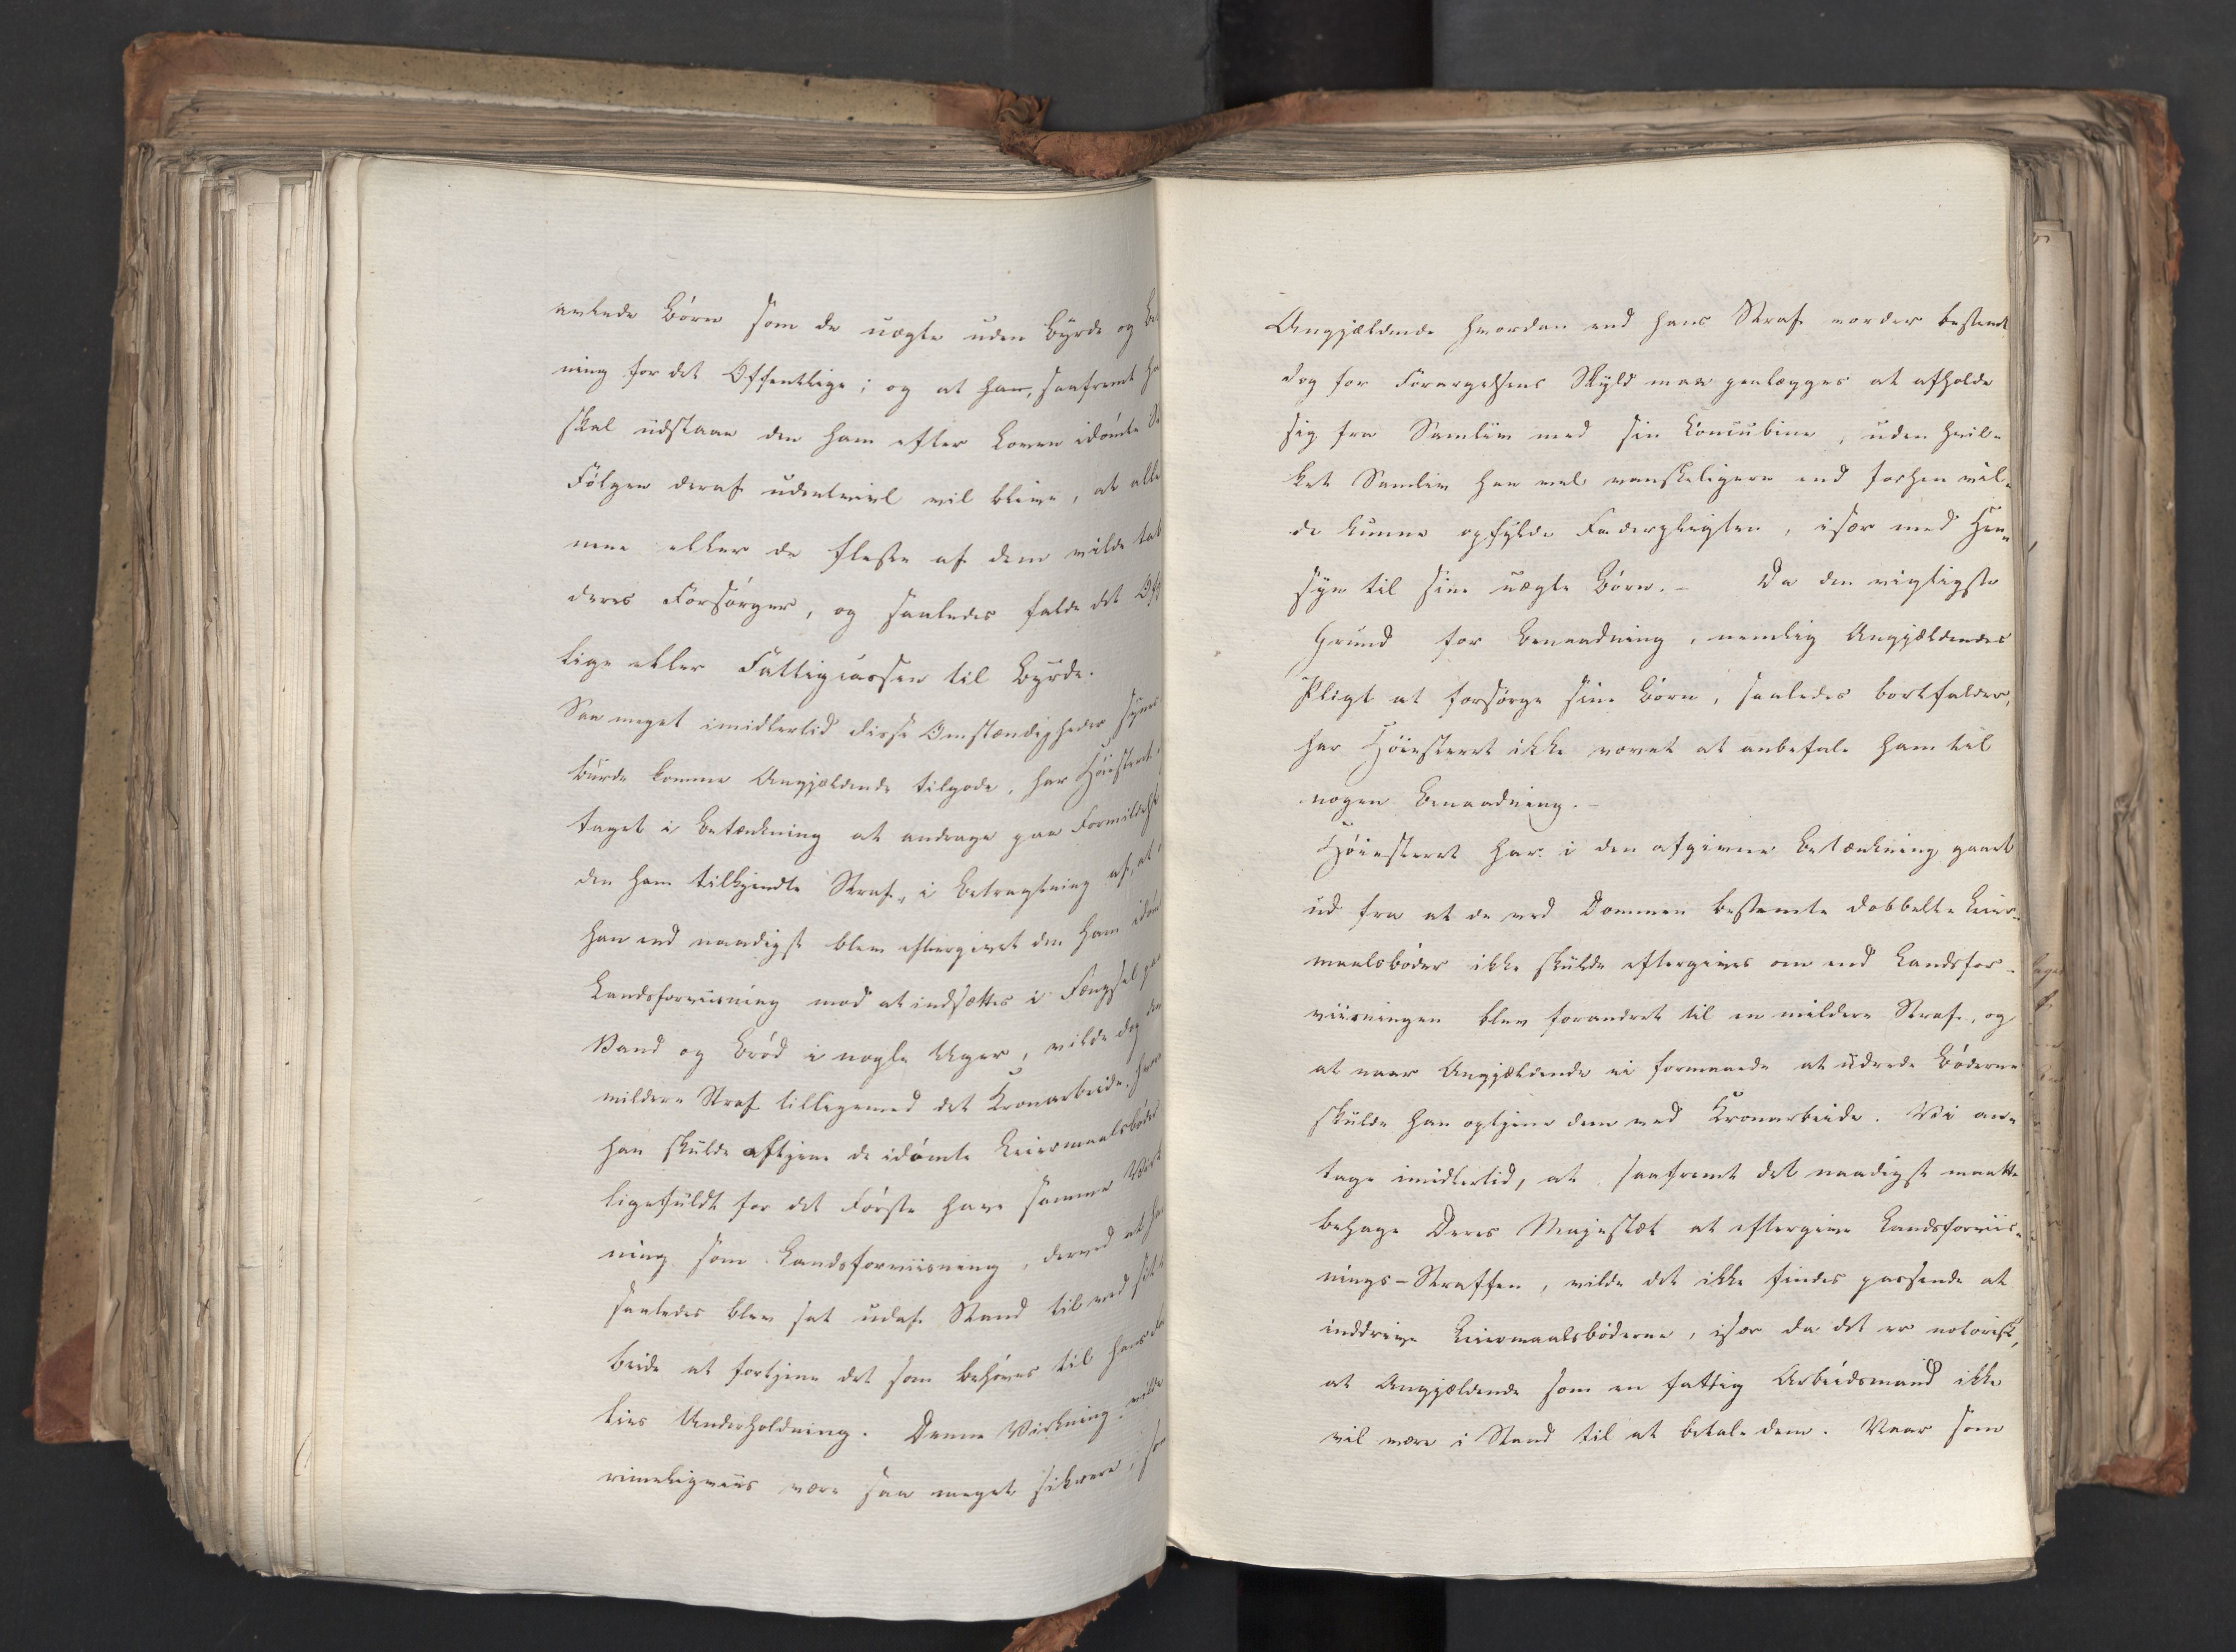 avlede Børn som de uægte uden Byrde og
ning for det Offentlige; og at han, saafremt
skal udstaae den ham efter Loven idømte
Følgen deraf udentvivl vil blive, at alle
mene eller de fleste af dem vilde tab
deres Forsørger, og saaledes falde det Off
lige eller Fattigcassen til Byrde.
Saa meget imidlertid disse Omstændigheder synes
burde komme Angjældende tilgode, har Høiesteret
taget i Betænkning at andrage paa Formildelse
den ham tilkjendte Straf, i Betragtning af, at
han end naadigst blev eftergivet den ham idøm
Landsforviisning mod at indsættes i Fængsel paa
Vand og Brød i nogle Uger, vilde dog den
mildere Straf tilligemed det Kronarbeide, hvor
han skulde aftjene de idømte Leiermaalsbøder
ligefuldt for det Første have samme Virk
ning som Landsforviisning, derved at han
saaledes blev sat udaf Stand til ved sit
beide at fortjene det som behøves til hans
lies Underholdning. Denne Virkning vilde
rimeligviis være saa meget sikkrere, som
Angjældende hvordan end hans Straf vorder bestemt
dog for Forargelsens Skyld maa paalægges at afholde
sig fra Samliv med sin Concubine, uden hvil-
ket Samliv han vel vanskeligere end forhen vil-
de kunne opfylde Faderpligten, især med Hen-
syn til sine uægte Børn. - Da den vigtigste
Grund for Benaadning, nemlig Angjældendes
Pligt at forsørge sine Børn, saaledes bortfalder,
har Høiesteret ikke vovet at anbefale ham til
nogen Benaadning. -
Høiesteret har i den afgivne Betænkning gaaet
ud fra at de ved Dommen bestemte dobbelte Leier-
maalsbøder ikke skulde eftergives om end Landsfor-
viisningen blev forandret til en mildere Straf, og
at naar Angjældende ei formaaede at udrede Bøderne
skulde han optjene dem ved Kronarbeide. Vi an-
tage imidlertid, at saafremt det naadigst maatte
behage Deres Majestæt at eftergive Landsforviis-
nings-Straffen, vilde det ikke findes passende at
inddrive Leiermaalsbøderne, især da det er notorisk,
at Angjældende som en fattig Arbeidsmand ikke
vil være i Stand til at betale dem. Naar som